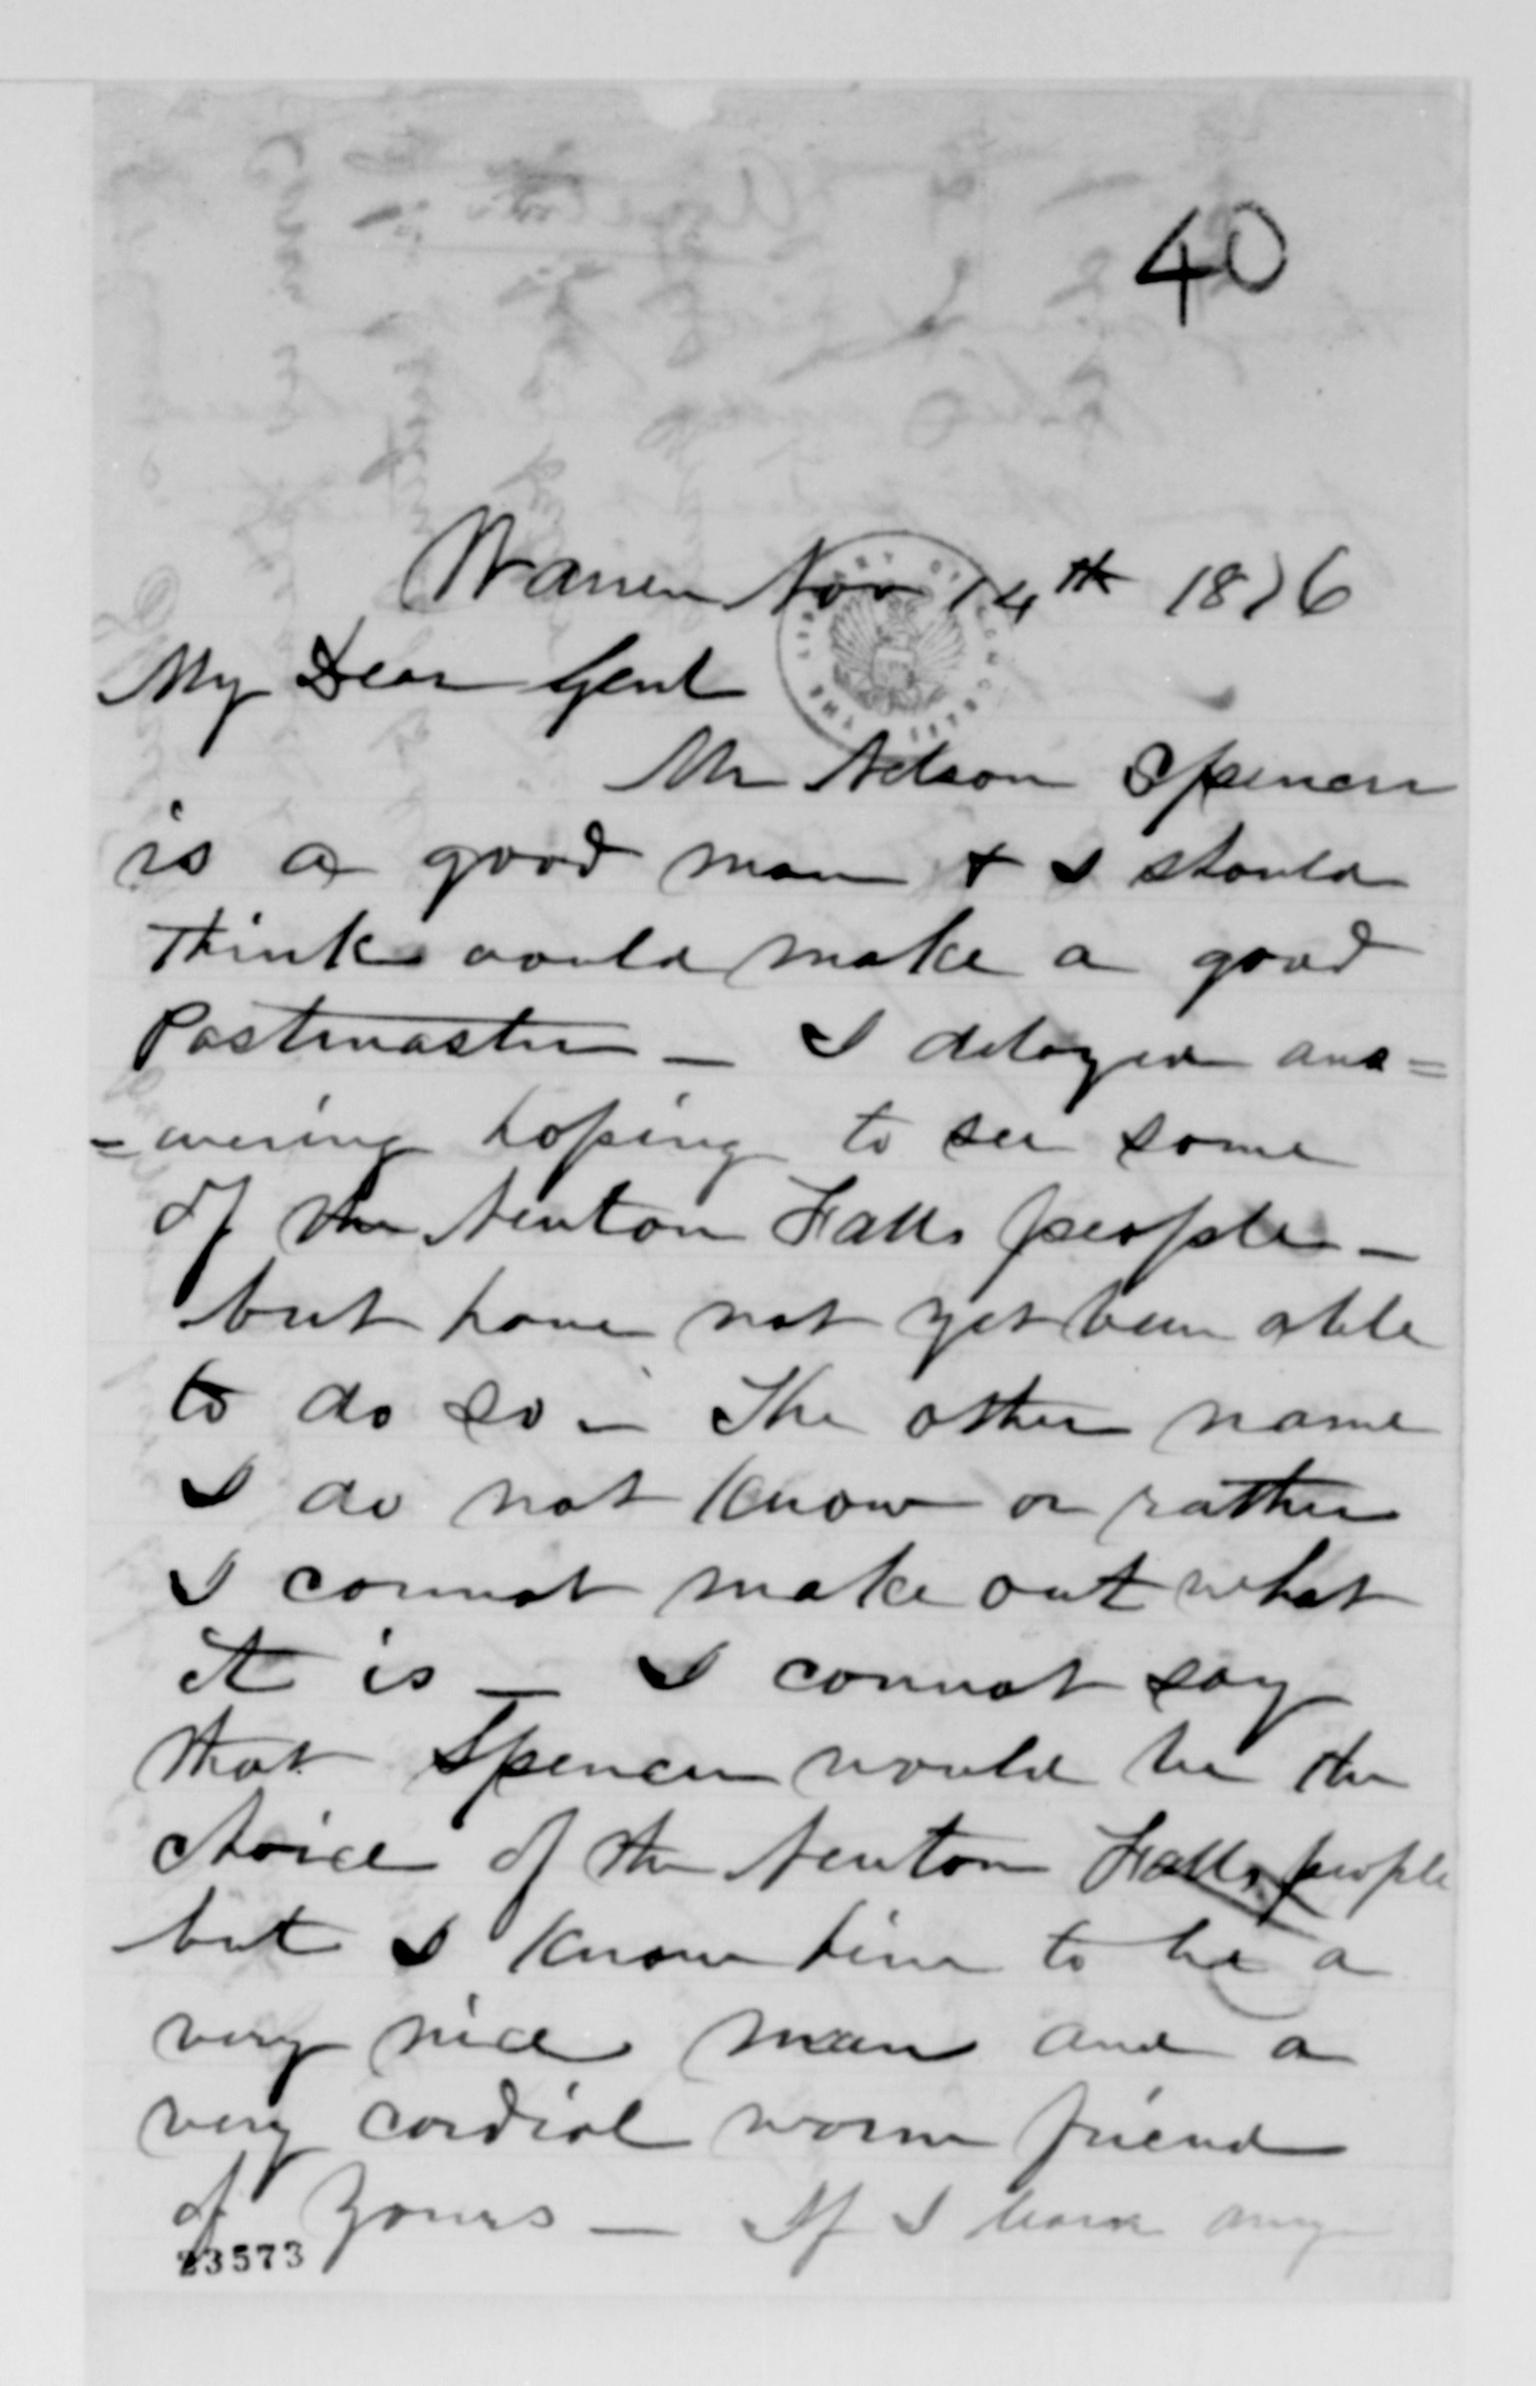 40
Warren Nov 14th 1876
My Dear Genl
Mr Nelson Spencer
is a good man + I should
think would make a good
Postmaster — I delayed ans=
=wering hoping to see some
of the Newton Falls people —
but have not yet been able
to do so — The other name
I do not know or rather
I cannot make out what
it is — I cannot say
that Spencer would be the
choice of the Newton Falls people
but I know him to be a
very nice man and a
very cordial warm friend
of yours — If I learn any
23573